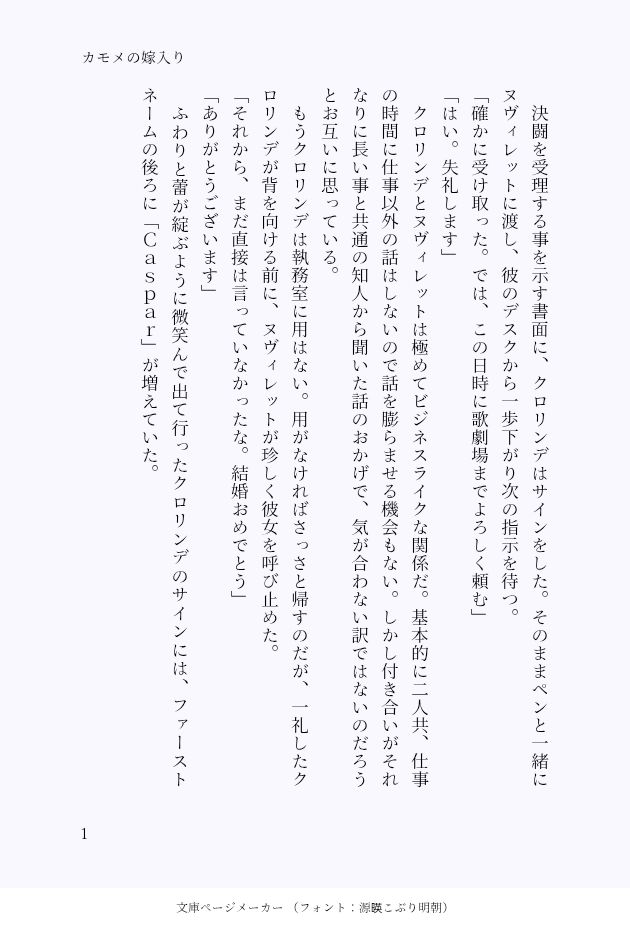 カモメの嫁入り
　決闘を受理する事を示す書面に、クロリンデはサインをした。そのままペンと一緒に
ヌヴィレットに渡し、彼のデスクから一歩下がり次の指示を待つ。
「確かに受け取った。では、この日時に歌劇場までよろしく頼む」
「はい。失礼します」
　クロリンデとヌヴィレットは極めてビジネスライクな関係だ。基本的に二人共、仕事
の時間に仕事以外の話はしないので話を膨らませる機会もない。しかし付き合いがそれ
なりに長い事と共通の知人から聞いた話のおかげで、気が合わない訳ではないのだろう
とお互いに思っている。
　もうクロリンデは執務室に用はない。用がなければさっさと帰すのだが、一礼したク
ロリンデが背を向ける前に、ヌヴィレットが珍しく彼女を呼び止めた。
「それから、まだ直接は言っていなかったな。結婚おめでとう」
「ありがとうございます」
　ふわりと蕾が綻ぶように微笑んで出て行ったクロリンデのサインには、ファースト
ネームの後ろに「Ｃａｓｐａｒ」が増えていた。
1
文庫ページメーカー（フォント：源暎こぶり明朝）